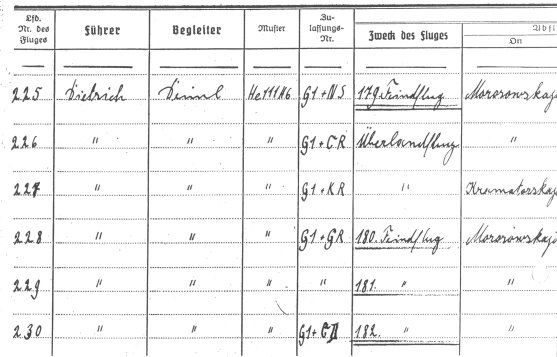 Lfd. Nr. des Fluges Führer Begleiter Muster Zulassungs-Nr. Zweck des Fluges Abfl
On
225 Dietrich He111H6 G1+NS 179. Feindflug Morosowskaj
226 " " " G1+CR Überlandflug "
227 " " " G1+KR " Kramatorskaj
228 " " " G1+GR 180. Feindflug Morosowskaj
229 " " " " 181. " "
230 " " " 182. " "